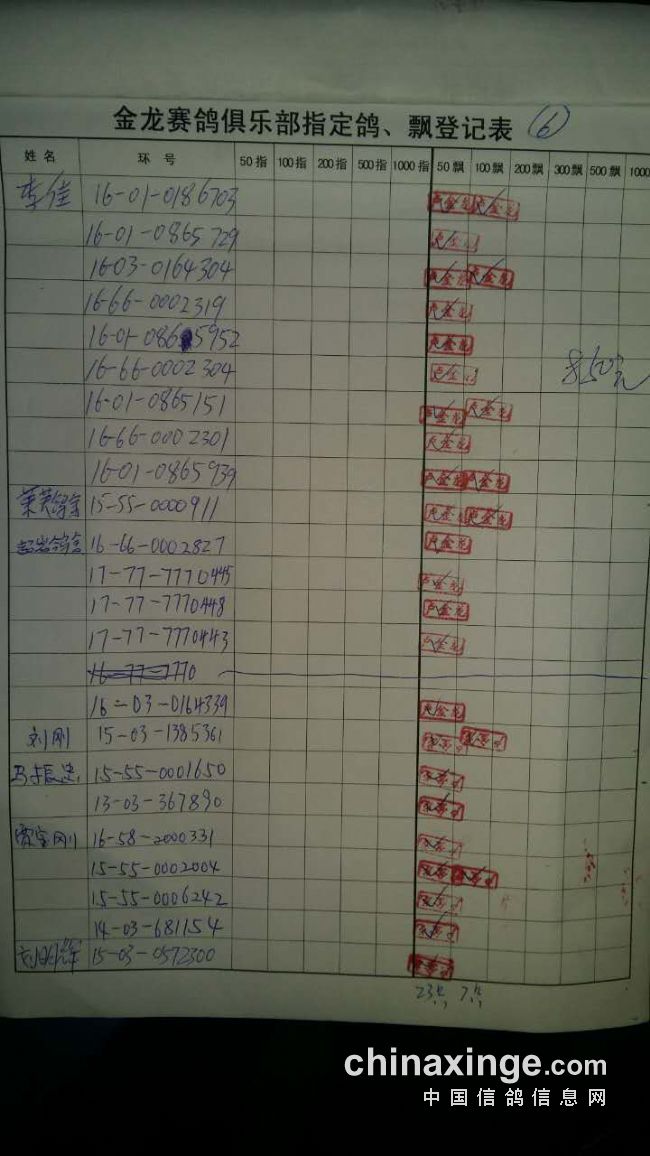 金龙赛鸽俱乐部指定鸽、飘登记表 ⑥
姓名 环号 50指 100指 200指 500指 1000指 50飘 100飘 200飘 300飘 500飘 1000
李佳 16-01-0186703
16-01-0865729
16-03-0164304
16-66-0002319
16-01-0865952
16-66-0002304 850元
16-01-0865151
16-66-0002301
16-01-0865939
15-55-0000911
16-66-0002827
17-77-7770445
17-77-7770448
17-77-7770443
16-77-7770
16-03-0164339
刘刚 15-03-1385361
15-55-0001650
13-03-367890
16-58-2000331
15-55-0002004
15-55-0006242
14-03-681154
15-03-0572300
23 7
chinaxinge.com
中国信鸽信息网